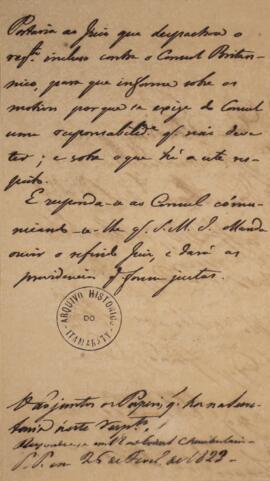 Portaria ao Juis que despachou o
reqto. incluso contra o Consul Britan-
nico, para que informe sobre os
motivos porque se exige do Consul
uma responsabilide. q. não deve
ter; e sobre o que ha a este res-
peito.
E responda-se ao Consul commu-
nicando-se-lhe q. S. M. I. Manda
ouvir o referido Juis, e dará as
providencias q. forem justas.
ARQUIVO HISTORICO
DO
ITAMARATY
Vão juntos os Papeis, q. ha na Secre-
taria neste respto.
em 18 de
P. P. em 25 de de 1829.